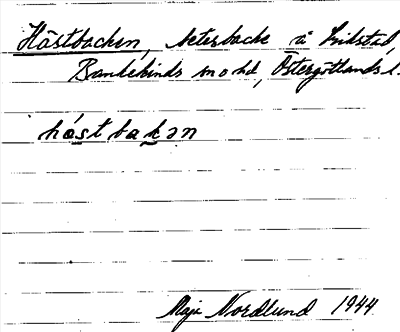 Hästbacken, beteshacke å Frikstad,
Bankekinds sn o hd, Östergötlands l.
hástbakən
Maja Nordlund 1944